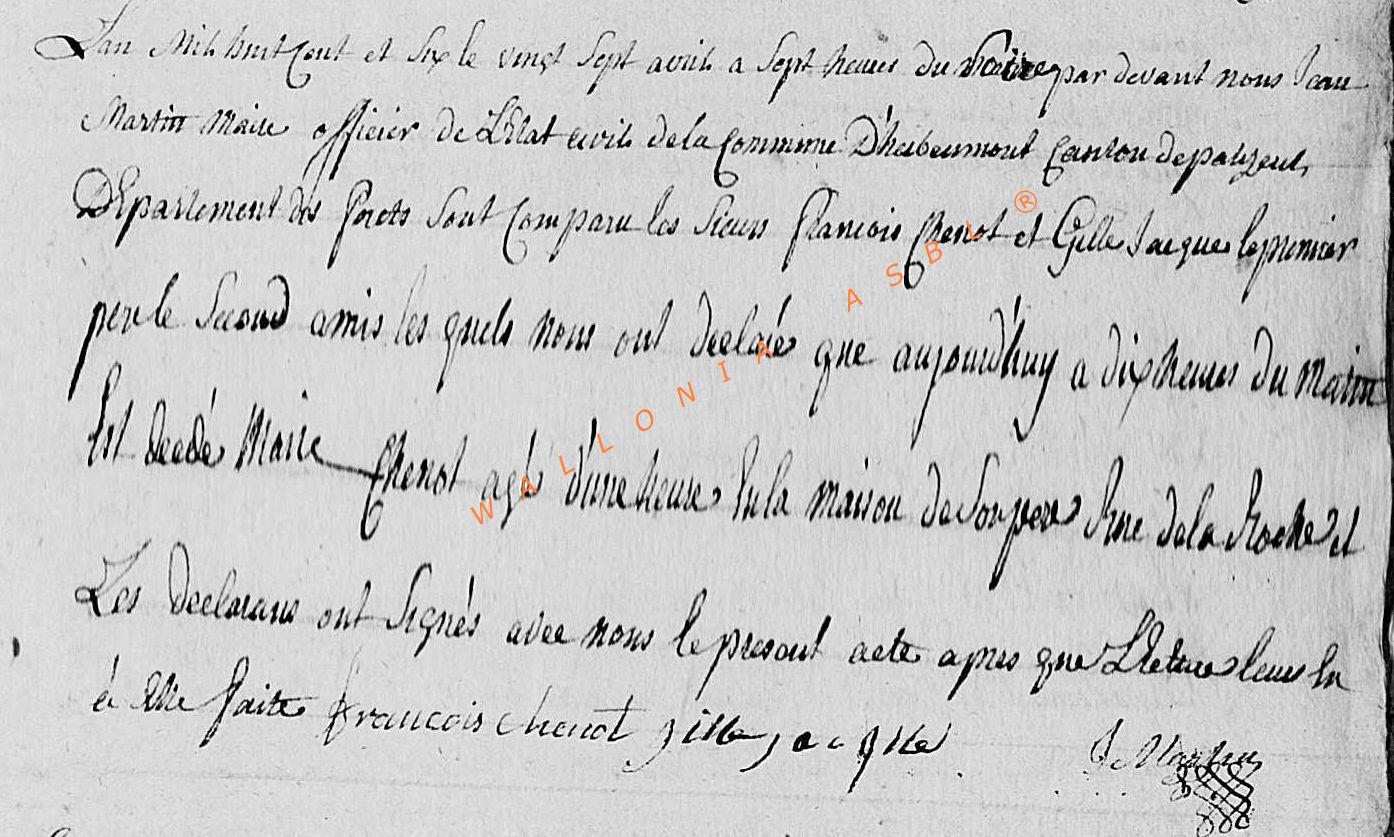 Lan Mil huit Cent et six le vingt sept avril a sept heures du soire par devant nous Jean
Martin Maire officier de L'Etat civil de la Commune D'herbeumont Canton de palizeul
Département des forets sont Comparu les sieurs francois Chenot et Gille Jacque le premier
pere le second amis les quels nous ont declaré que aujourd'huy a dix heures du matin
Est decedé Marie Chenot agé d'une heure En la maison de son pere Rue de la Roche et
Les declarans ont signés avec nous le present acte apres que Lecture leur En
à Eté faite francois chenot gille jacque J Martin
WALLONIA ASBL ®